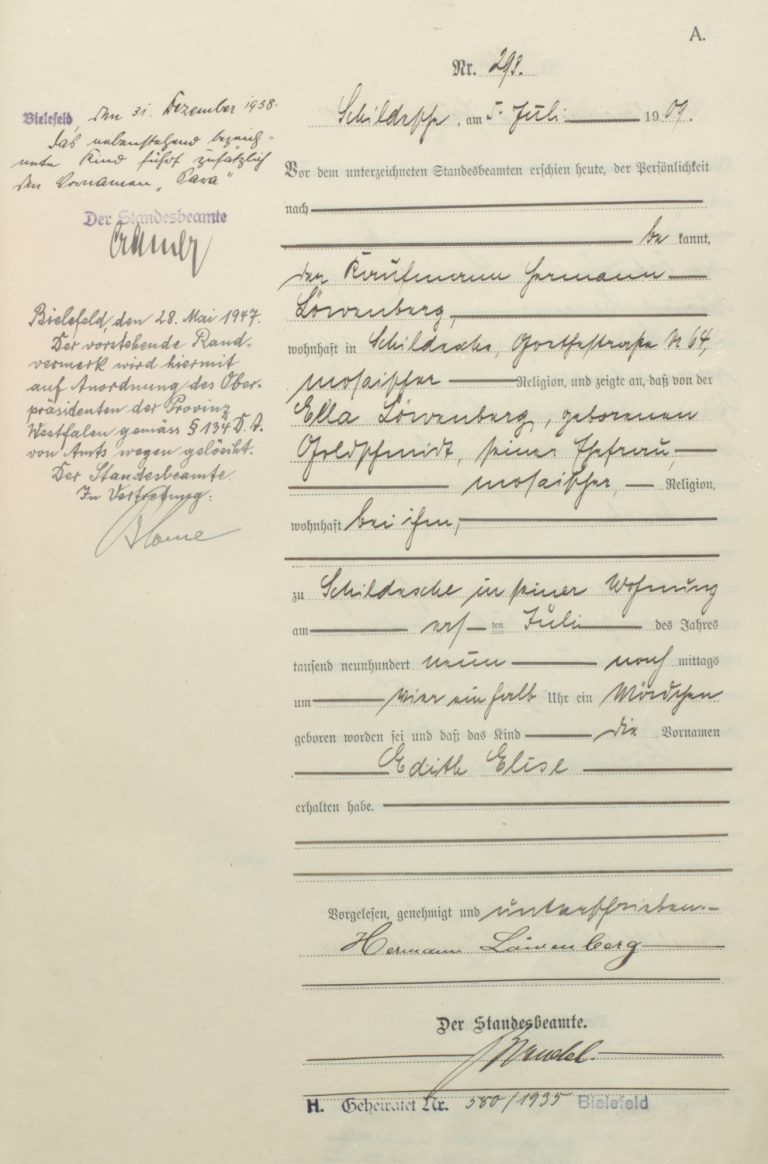 A.
Nr. 293.
Schildesche, am 5. Juli 1909.
Vor dem unterzeichneten Standesbeamten erschien heute, der Persönlichkeit
nach
be kannt,
der Kaufmann Hermann
Löwenberg,
wohnhaft in Schildesche, Goethestraße N 64,
mosaischer Religion, und zeigte an, daß von der
Ella Löwenberg, geborenen
Goldschmidt, seiner Ehefrau,
mosaischer, Religion,
wohnhaft bei ihm,
zu Schildesche in seiner Wohnung
am ersten Juli des Jahres
tausend neunhundert neun nach mittags
um vier ein halb Uhr ein Mädchen
geboren worden sei und daß das Kind die Vornamen
Edith Elise
erhalten habe.
Vorgelesen, genehmigt und unterschrieben.
Hermann Löwenberg
Der Standesbeamte.
H. Geheiratet Nr. 580/1935 Bielefeld
Bielefeld, den 31. Dezember 1938.
Das nebenstehend bezeich-
nete Kind führt zusätzlich
den Vornamen „Sara"
Der Standesbeamte
Cramer
Bielefeld, den 28. Mai 1947.
Der vorstehende Rand-
vermerk wird hiermit
auf Anordnung des Ober-
präsidenten der Provinz
Westfalen gemäss § 134 D.A.
von Amts wegen gelöscht.
Der Standesbeamte.
In Vertretung: